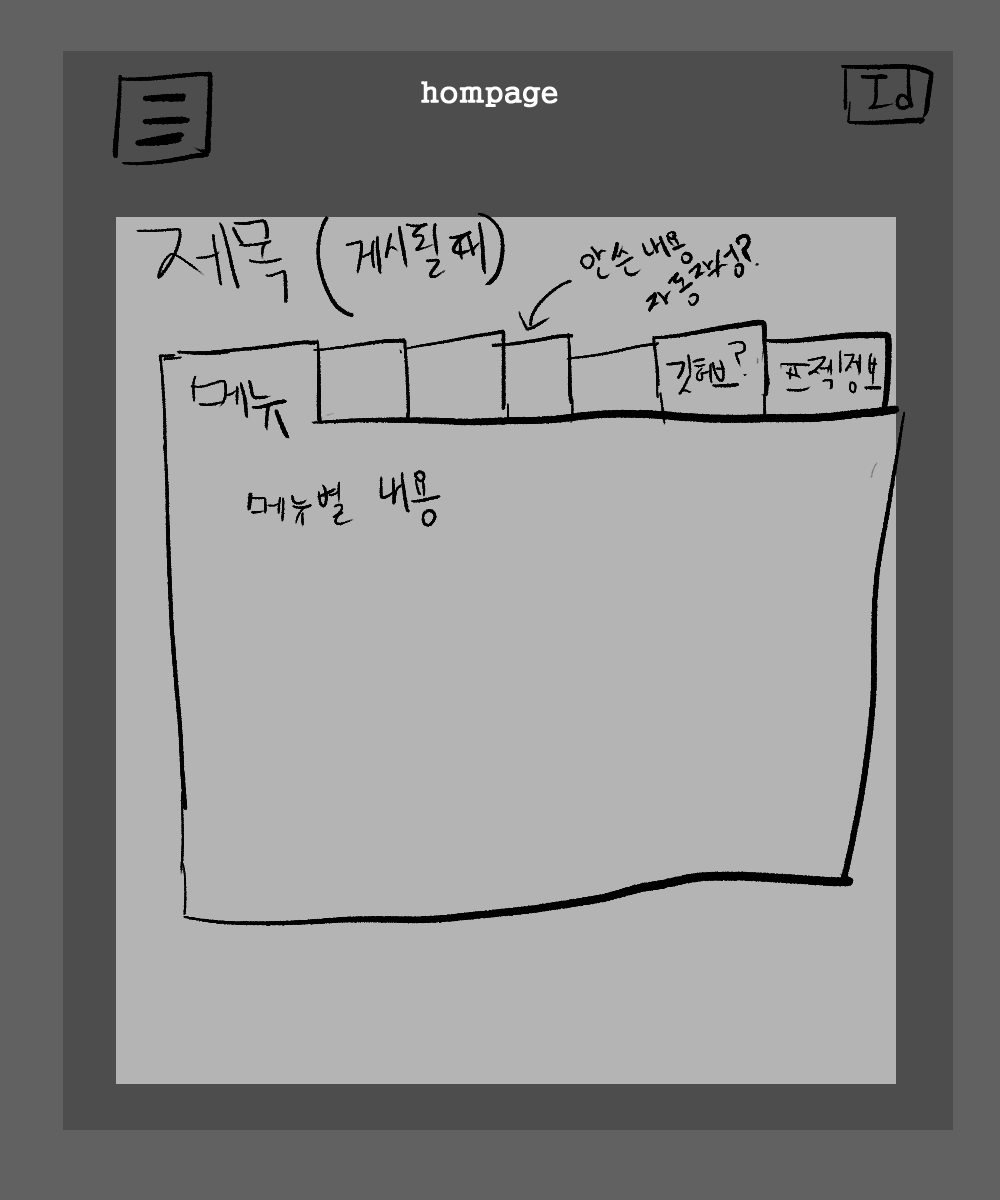 hompage
Id
제목 (게시될 때)
안 쓴 내용
자동작성?
메뉴
깃허브?
프젝정보
메뉴별 내용